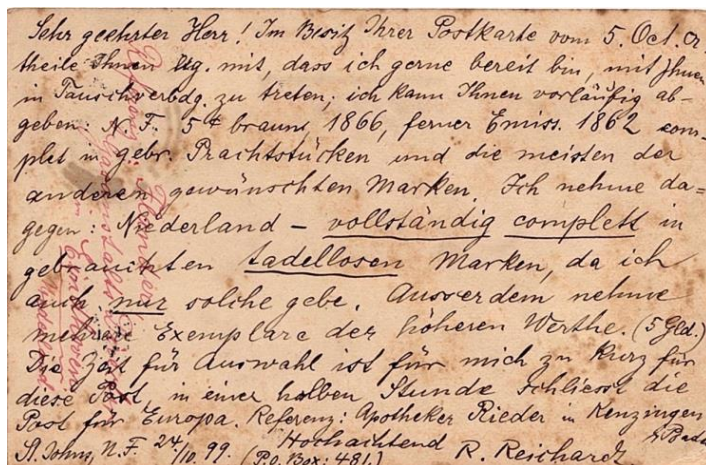 Sehr geehrter Herr! Im Besitz Ihrer Postkarte vom 5. Oct. cr.
theile Ihnen mit, dass ich gerne bereit bin, mit Ihnen
in Tauschverbdg. zu treten; ich kann Ihnen vorläufig ab-
geben: N. F. 5 ¢ braun, 1866, ferner Emiss. 1862 com-
plet in gebr. Prachtstücken und die meisten der
anderen gewünschten Marken. Ich nehme da=
gegen: Niederland – vollständig complett in
gebrauchten tadellosen Marken, da ich
auch nur solche gebe. Ausserdem nehme
mehrere Exemplare der höheren Werthe. (5 Gld.)
Die Zeit für Auswahl ist für mich zu kurz für
diese Post, in einer halben Stunde schliesst die
Post für Europa. Referenz: Apotheker Rieder in Kenzingen
Baden
St. Johns, N. F. 24/10. 99. Hochachtend R. Reichardt
(P.O. Box: 481.)